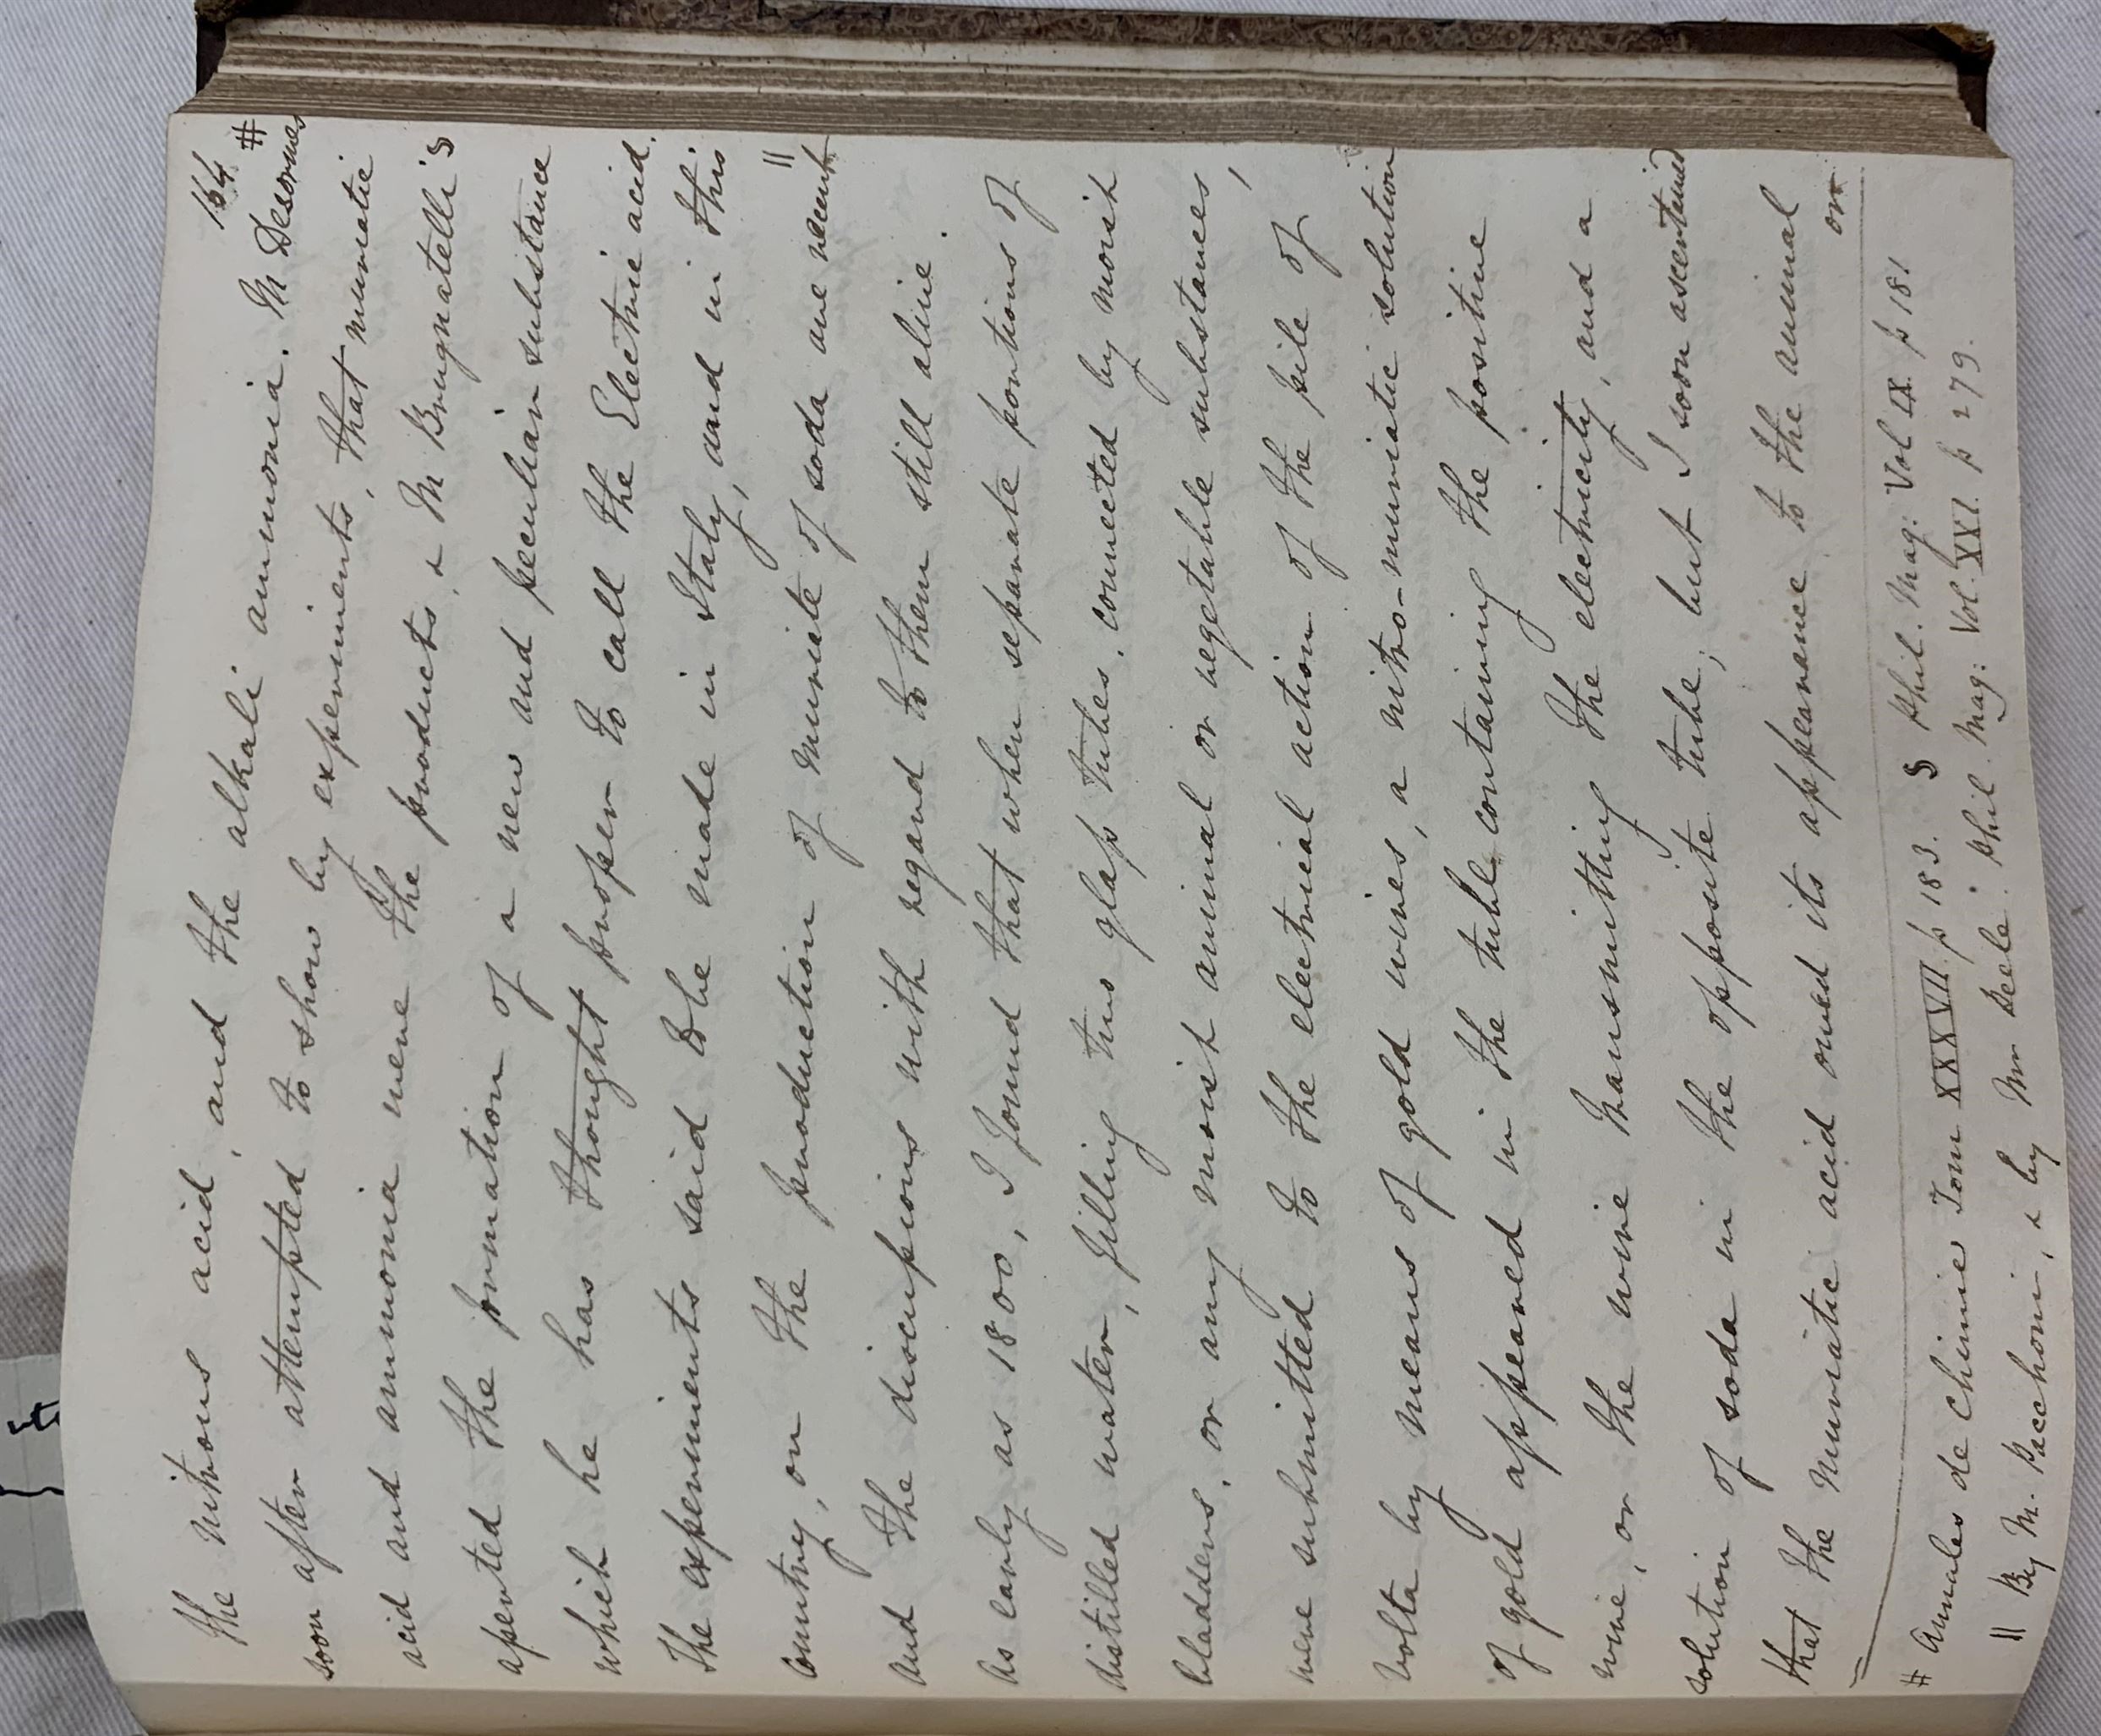 164
the nitrous acid, and the alkali ammonia. M Desormes #
soon after attempted to show by experiments, that muriatic
acid and ammonia were the products, & M Brugnatelli §
aſserted the formation of a new and peculiar substance
which he has thought proper to call the Electric acid.
The experiments said to be made in Italy, and in this
Country, on the production of muriate of soda are recent ||
and the discuſsions with regard to them still alive.
As early as 1800, I found that when separate portions of
distilled water, filling two glaſs tubes, connected by moist
bladders, or any moist animal or vegetable substances,
were submitted to the electrical action of the pile of
Volta by means of gold wires, a nitro-muriatic solution
of gold appeared in the tube containing the positive
wire, or the wire transmitting the electricity, and a
solution of soda in the opposite tube; but I soon ascertained
that the muriatic acid owed its appearance to the animal
or
# Annales de Chimie Tom XXXVII p 183. § Phil. Mag: Vol IX p 181
|| By M. Pacchioni, & by Mr Peele. Phil Mag: Vol. XXI. p 279.